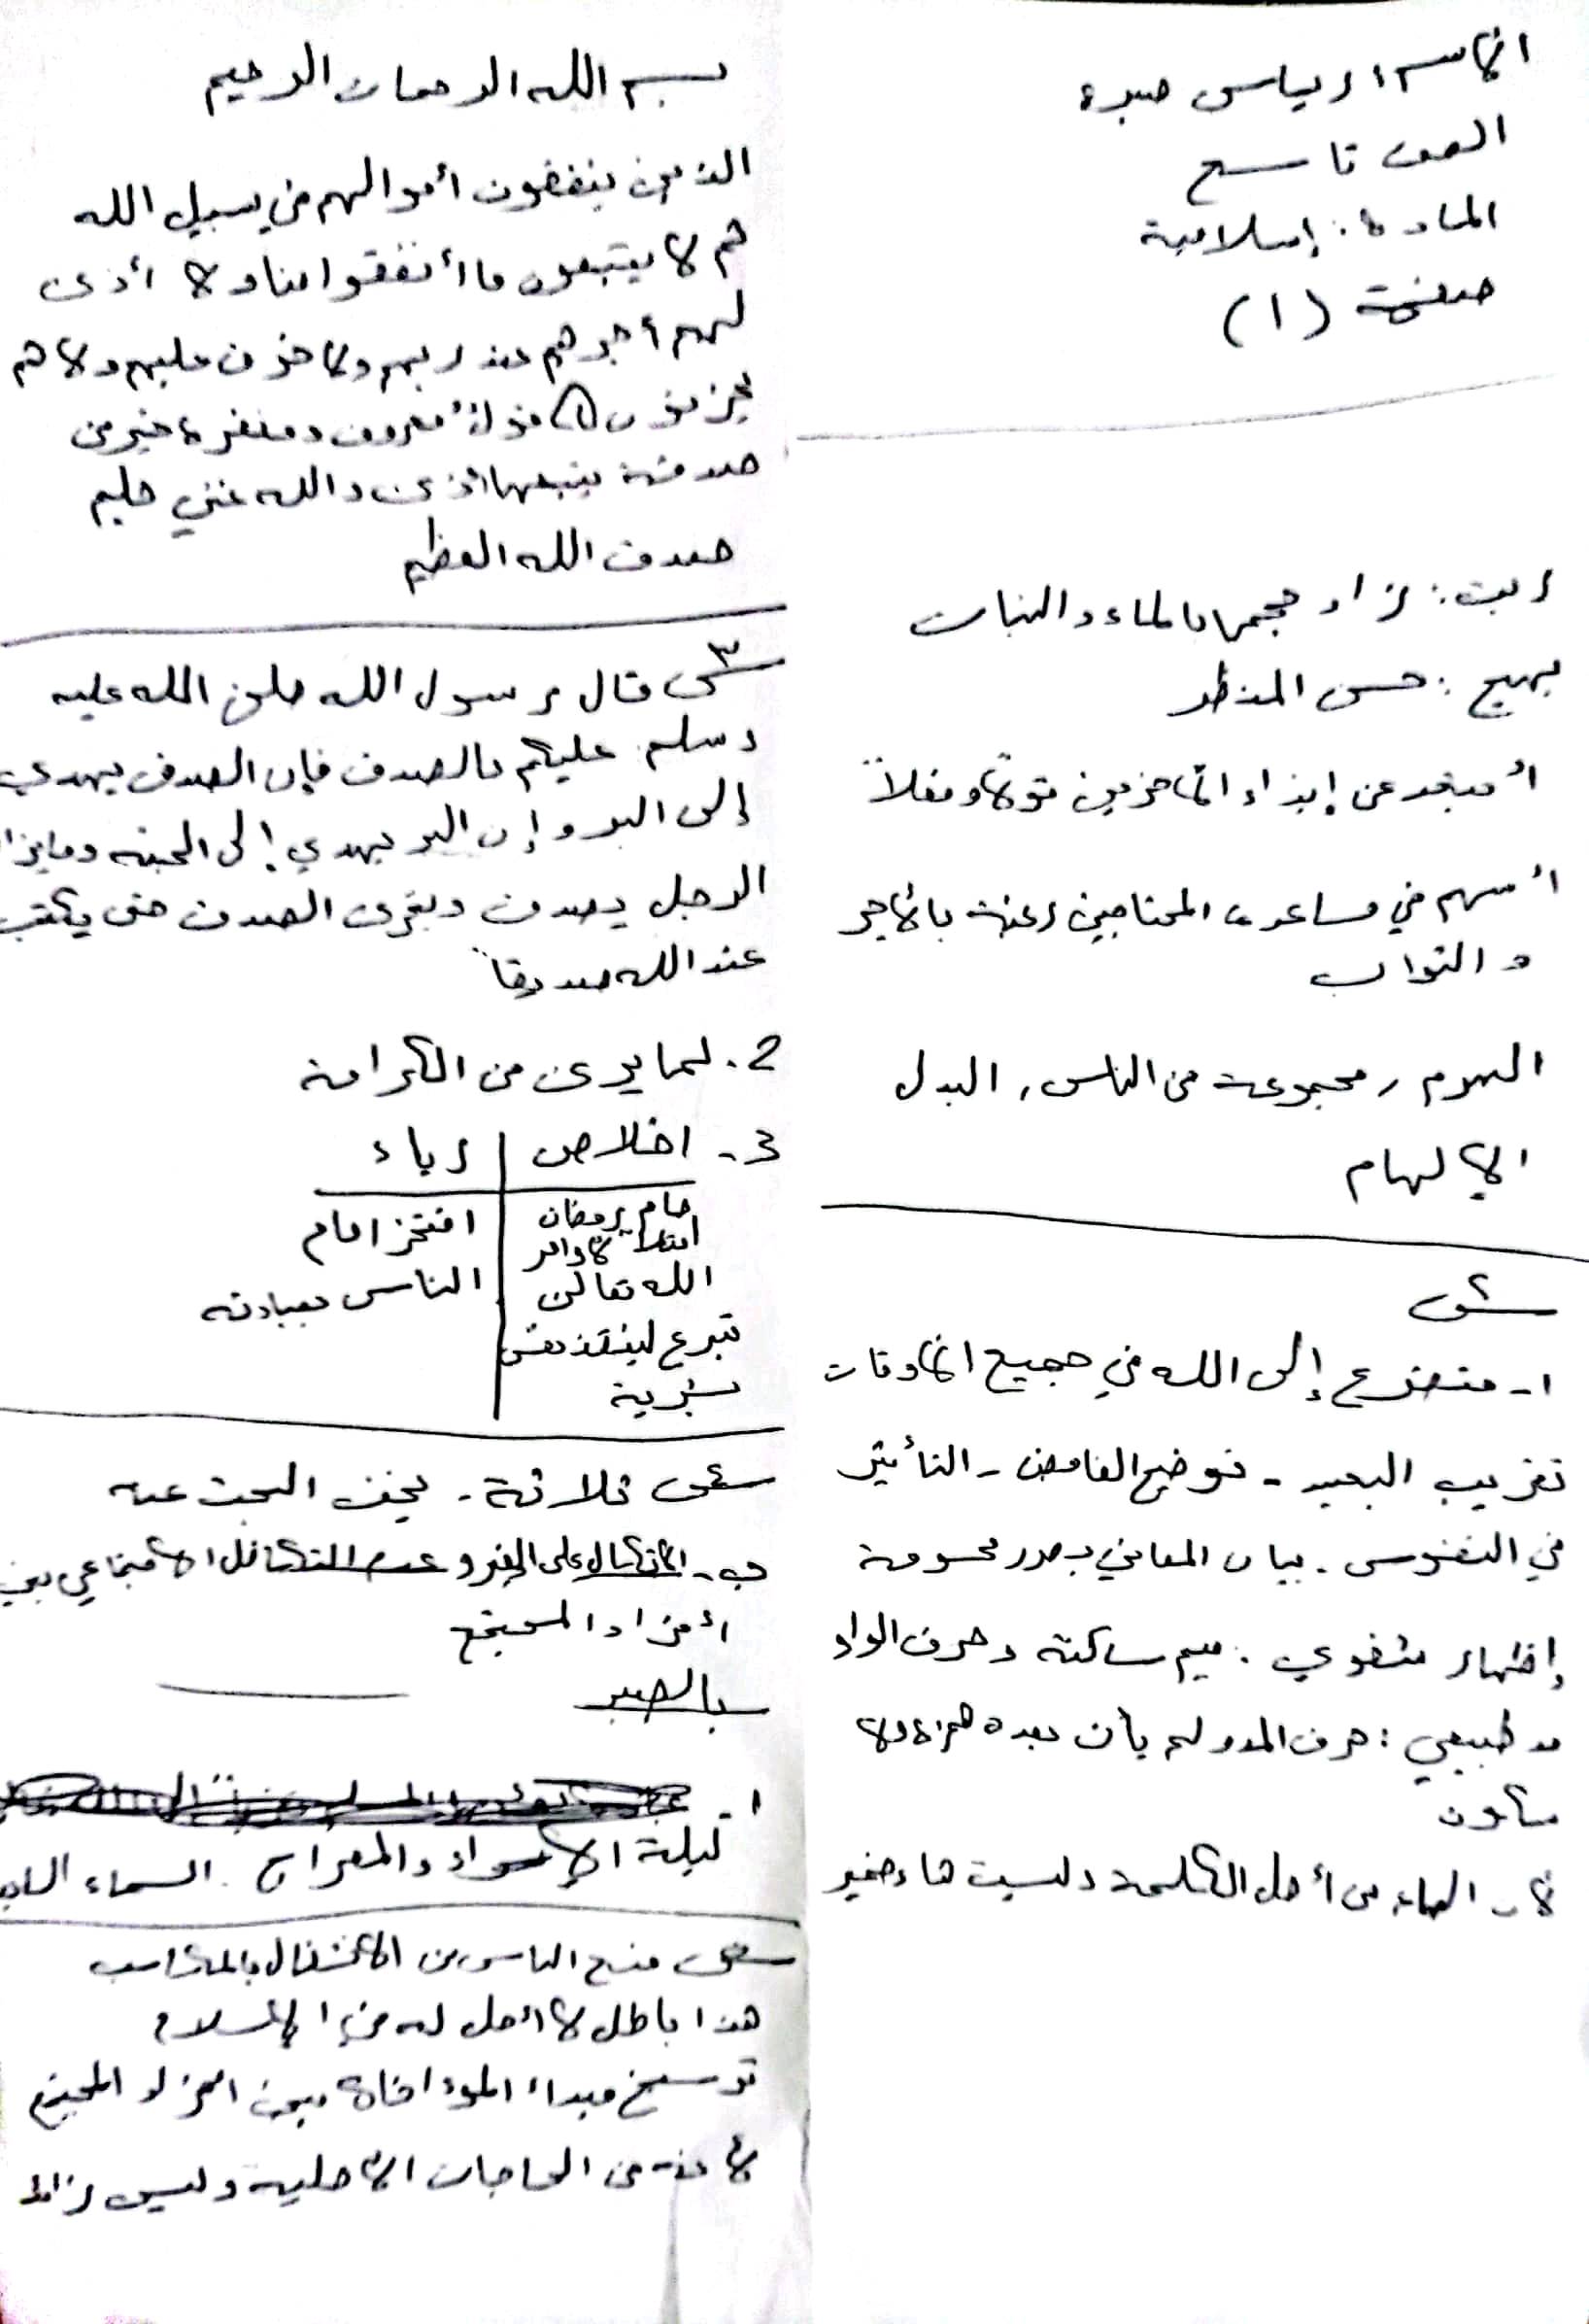 الاسم: إلياس صبره
الصف تاسع
المادة: إسلامية
صفحة (١)
ربت: زاد حجمها بالماء والنبات
بهيج: حسن المنظر
أبتعد عن إيذاء الآخرين قولاً وفعلاً
أسهم في مساعدة المحتاجين رغبة بالأجر
و الثواب
اليوم، مجموعة من الناس، البدل
الإلهام
س٢
١- متضرع إلى الله في جميع الأوقات
تقريب البعيد - توضيح الغامض - التأثير
في النفوس. بيان المعاني بصور محسوسة
إظهار شفوي: ميم ساكنة وحرف الواو
مد طبيعي: حرف المد ولم يأت بعده همزة ولا
سكون
لأن الهاء من أصل الكلمة وليست هاء ضمير
بسم الله الرحمان الرحيم
الذين ينفقون أموالهم في سبيل الله
ثم لا يتبعون ما أنفقوا منا ولا أذى
لهم أجرهم عند ربهم ولا خوف عليهم ولا هم
يحزنون ۝ قول معروف ومغفرة خير من
صدقة يتبعها أذى والله غني حليم
صدق الله العظيم
س٣ قال رسول الله صلى الله عليه
وسلم عليكم بالصدق فإن الصدق يهدي
إلى البر وإن البر يهدي إلى الجنة وما يزا
الرجل يصدق ويتحرى الصدق حتى يكتب
عند الله صديقاً
2. لما يرى من الكرامة
3- اخلاص | رياء
صام رمضان | افتخر امام
امتثالاً لأوامر
الله تعالى | الناس بعبادته
تبرع لينقذ نفس
بشرية
س٤ ثلاثة. يخف البحث عنه
ب- الاتكال على الغير وعدم التكافل الاجتماعي بين
أفراد المجتمع
بالصبر
١-
ليلة الإسراء والمعراج. السماء
س٥ منع الناس من الاشتغال بالمكاسب
هذا باطل لا أصل له في الإسلام
ترسيخ مبدأ المؤاخاة بين افراد المجتمع
لأنه من الحاجات الأصلية وليس زائد